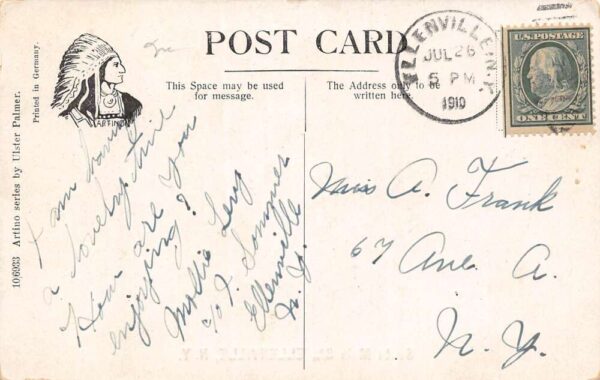 POST CARD
This Space may be used
for message.
The Address only to be
written here.
ELLENVILLE, N.Y.
JUL 26
5 PM
1910
U.S. POSTAGE
ONE CENT
ARTINO
Printed in Germany.
106933 Artino series by Ulster Palmer.
I am having
a lovely time
How are you
enjoying?
Mollie Levy
c/o I. Sommer
Ellenville
N.Y.
Miss A. Frank
67 Ave. A.
N. Y.